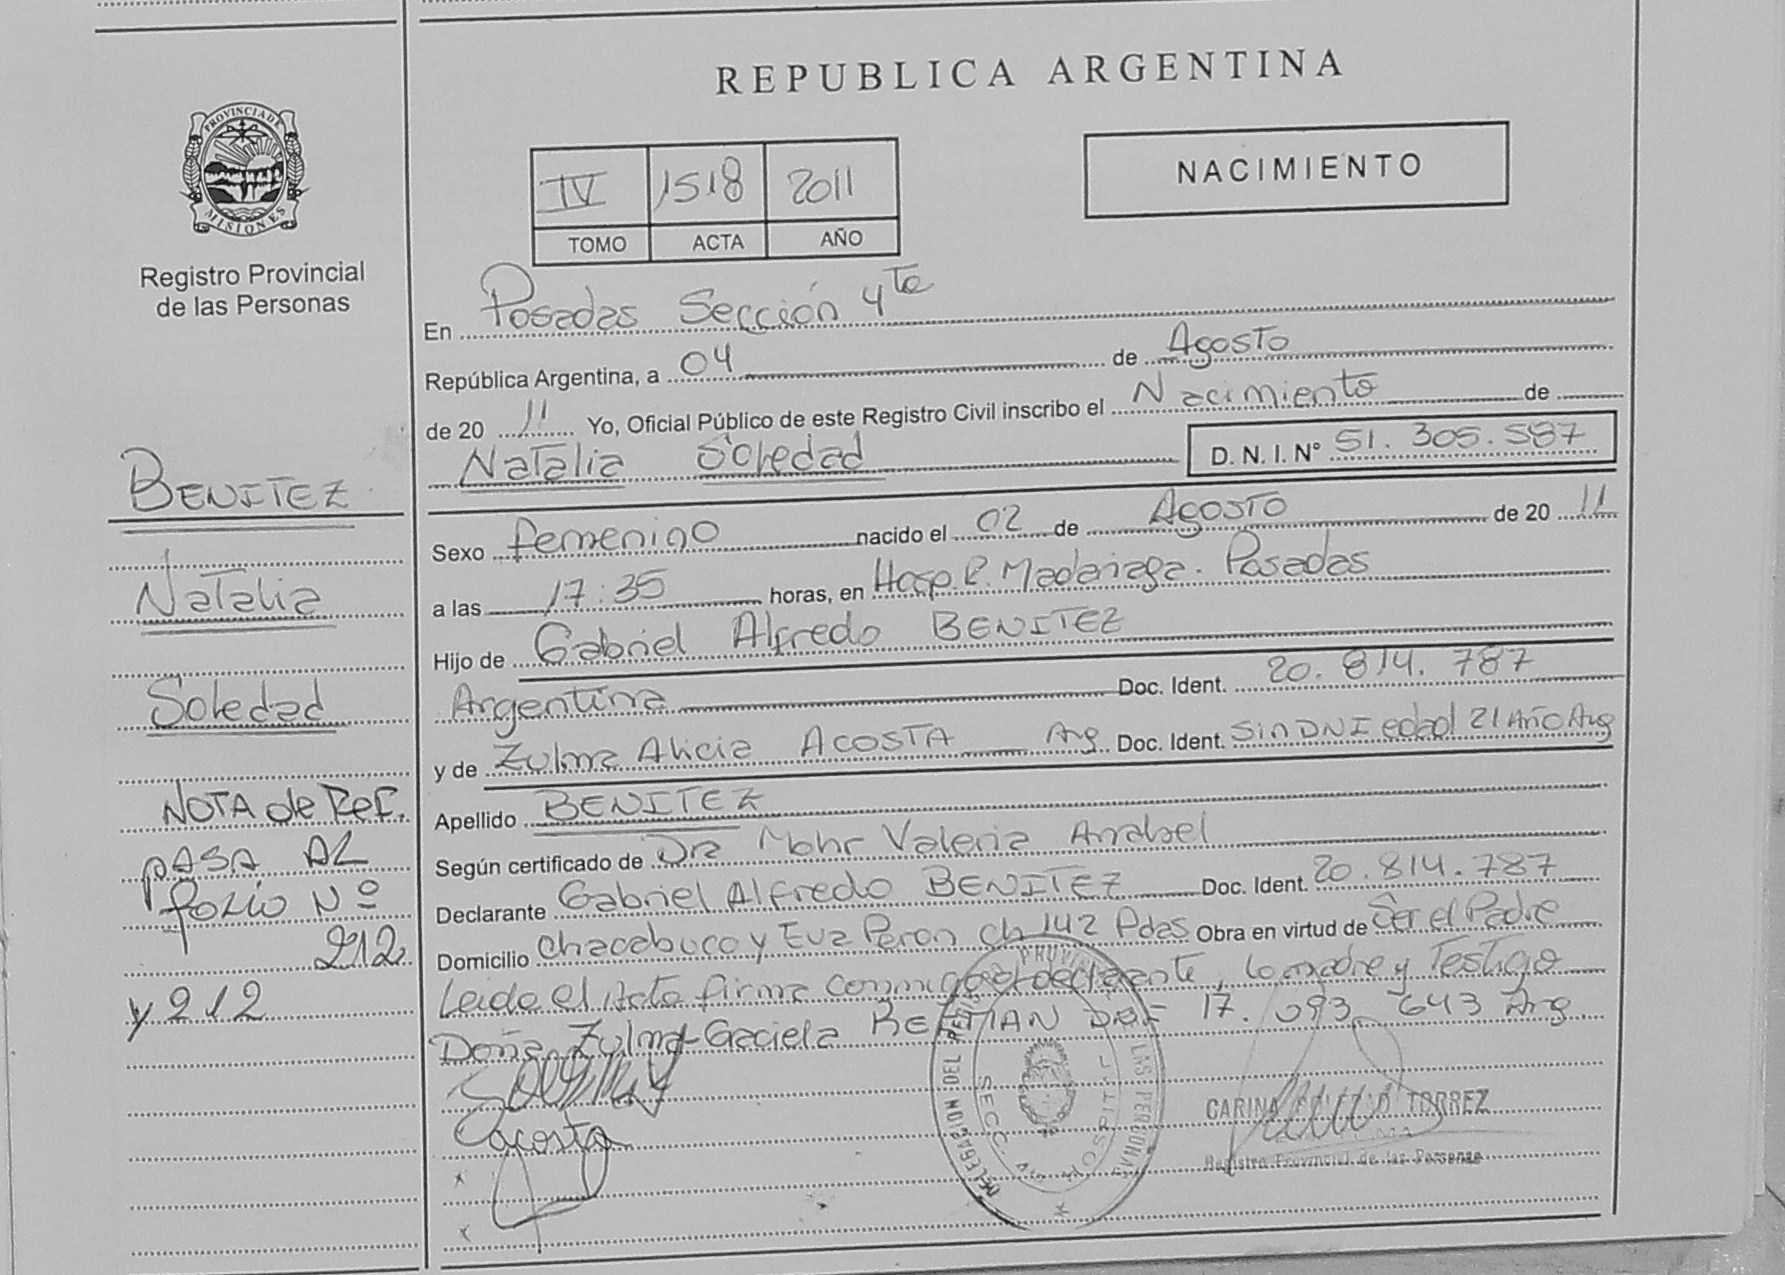 REPUBLICA ARGENTINA
PROVINCIA DE
MISIONES
Registro Provincial
de las Personas
IV 1518 2011
TOMO ACTA AÑO
NACIMIENTO
En Posadas Sección 4ta
República Argentina, a 04 de Agosto
de 20 11 Yo, Oficial Público de este Registro Civil inscribo el Nacimiento de
Natalia Soledad D. N. I. N° 51.305.587
Sexo femenino nacido el 02 de Agosto de 20 11
a las 17:35 horas, en Hosp. R. Madariaga. Posadas
Hijo de Gabriel Alfredo BENITEZ
Argentina Doc. Ident. 20.814.787
y de Zulma Alicia ACOSTA Arg Doc. Ident. Sin DNI edad 21 Año Arg
Apellido BENITEZ
Según certificado de Dra Mohr Valeria Anabel
Declarante Gabriel Alfredo BENITEZ Doc. Ident. 20.814.787
Domicilio Chacabuco y Eva Peron ch 142 Pdas Obra en virtud de Ser el Padre
Leida el Acta firma conmigo el declarante, la madre y Testigo
Doña Zulma Graciela 17.093.643 Arg
acosta
DELEGACION DEL REGISTRO PROVINCIAL DE LAS PERSONAS
SECC. 4a HOSPITAL
CARINA TORREZ
Registro Provincial de las Personas
BENITEZ
Natalia
Soledad
NOTA de Ref.
pASA AL
folio Nº
212
y 212